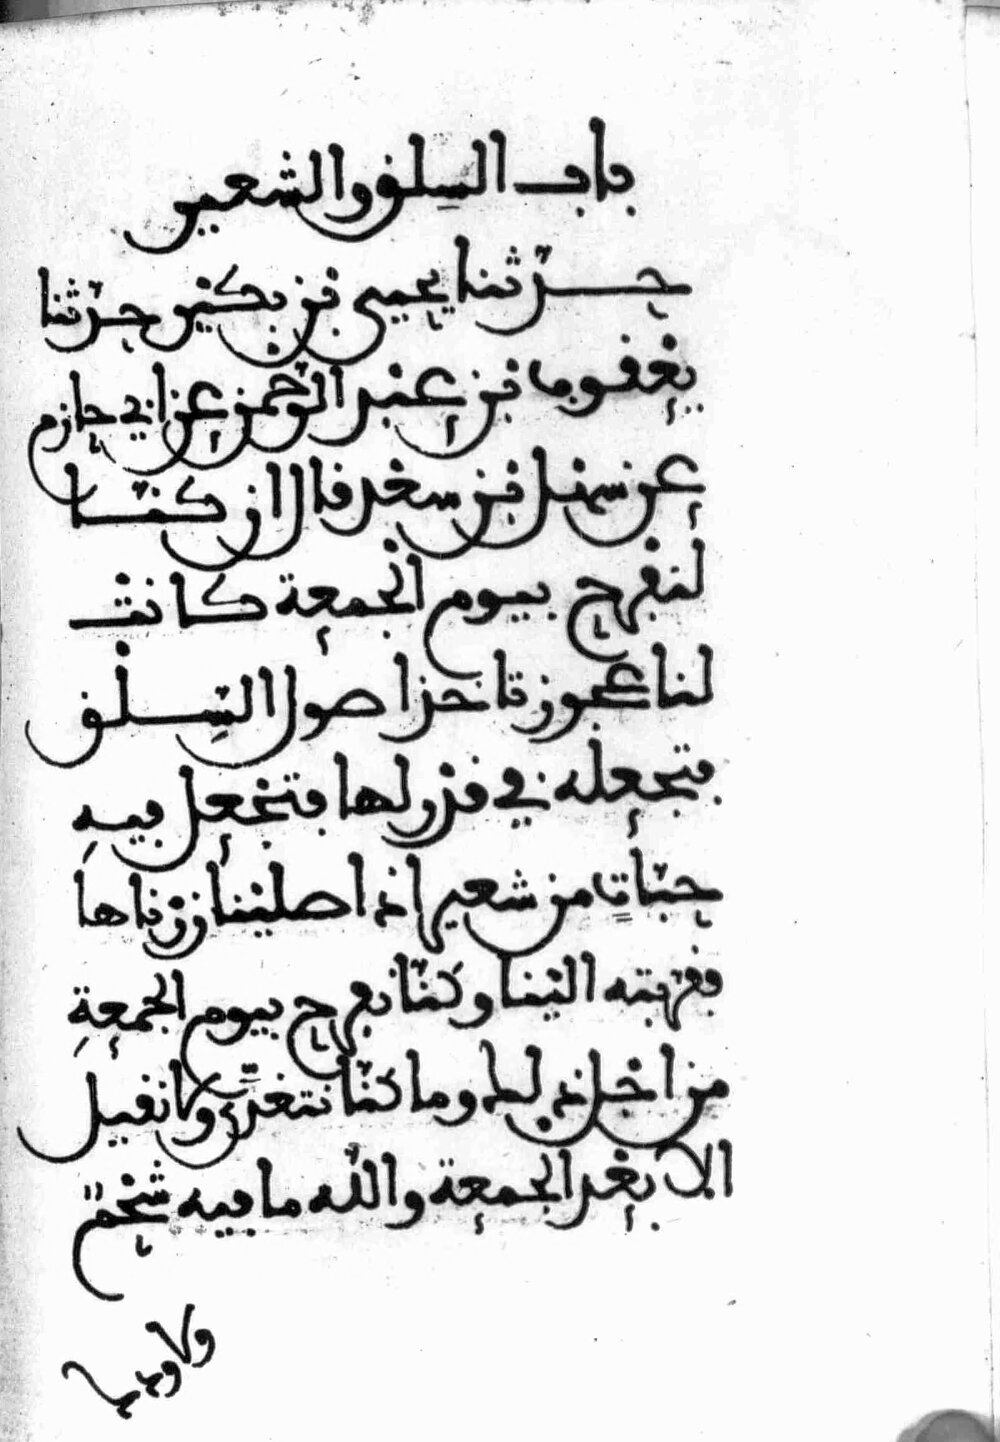 باب السلق والشعير
حدثنا يحيى بن بكير حدثنا
يعقوب بن عبد الرحمن عن ابي حازم
عن سهل بن سعد قال ان كنا
لنفرح بيوم الجمعة كانت
لنا عجوز تاخذ اصول السلق
فتجعله في قدر لها فتجعل فيه
حبات من شعير اذا صلينا زرناها
فقربته الينا وكنا نفرح بيوم الجمعة
من اجل ذلك وما كنا نتغدى ولا نقيل
الا بعد الجمعة والله ما فيه شحم
ولا ودك